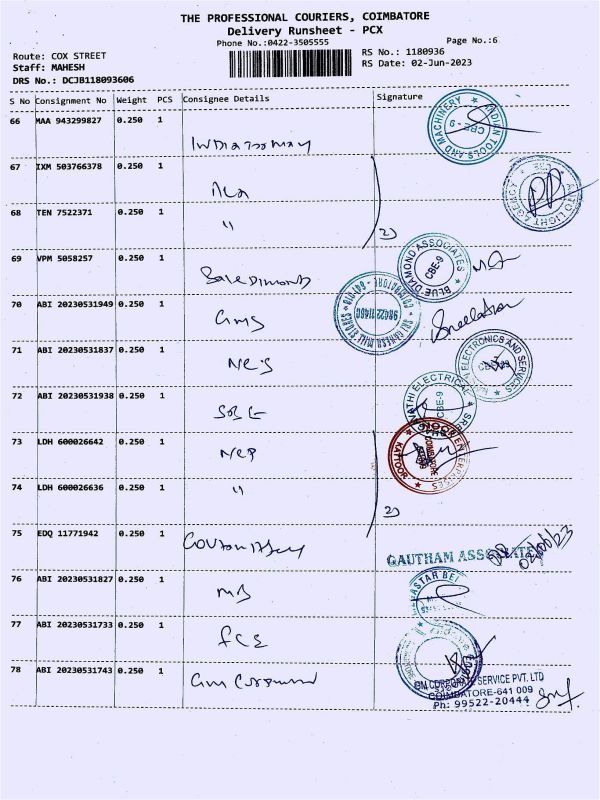 THE PROFESSIONAL COURIERS, COIMBATORE
Delivery Runsheet - PCX
Phone No.:0422-3505555 Page No.:6
Route: COX STREET RS No.: 1180936
Staff: MAHESH RS Date: 02-Jun-2023
DRS No.: DCJB118093606
S No Consignment No Weight PCS Consignee Details Signature
66 MAA 943299827 0.250 1
INDIAN TOOLS AND MACHINERY CBE - 9
67 IXM 503766378 0.250 1
AUTO LIGHT AGENCY
68 TEN 7522371 0.250 1
"
2)
69 VPM 5058257 0.250 1
BLUE DIAMOND ASSOCIATES CBE-9
70 ABI 20230531949 0.250 1
GMS
SRI GANESH MILL STORES COIMBATORE 98422 11460
71 ABI 20230531837 0.250 1
NES
ELECTRONICS AND SERVICES
72 ABI 20230531938 0.250 1
ELECTRICAL CBE-9
73 LDH 600026642 0.250 1
NEP
NOOR ENTERPRISES KATTOOR COIMBATORE
74 LDH 600026636 0.250 1
"
2)
75 EDQ 11771942 0.250 1
GAUTHAM ASSOCIATES
02/06/23
76 ABI 20230531827 0.250 1
MB
77 ABI 20230531733 0.250 1
FCS
78 ABI 20230531743 0.250 1
GM
GM CORPORATE SERVICE PVT. LTD
COIMBATORE-641 009
Ph: 99522-20444